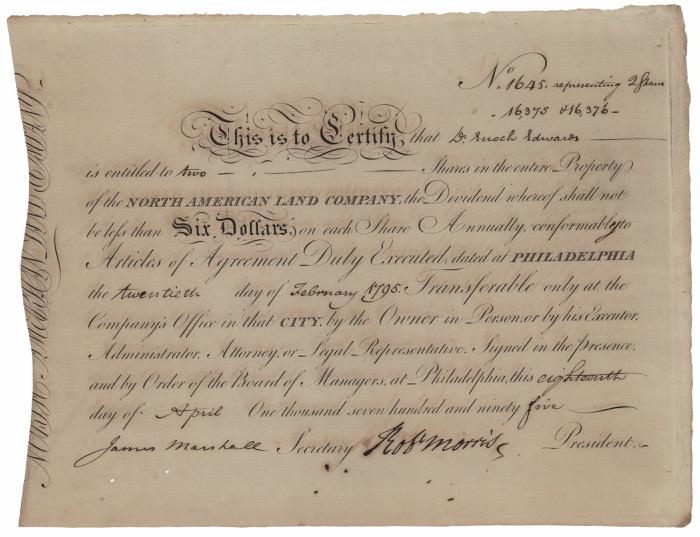 No. 1645. representing 2 Shares
16,375 & 16,376
This is to Certify, that Dr. Enoch Edwards
is entitled to two Shares in the entire Property
of the NORTH AMERICAN LAND COMPANY, the Dividend whereof shall not
be less than Six Dollars, on each Share Annually, conformably to
Articles of Agreement Duly Executed, dated at PHILADELPHIA
the twentieth day of February 1795. Transferable only at the
Company's Office in that CITY, by the Owner in Person, or by his Executor,
Administrator, Attorney, or Legal Representative. Signed in the presence,
and by Order of the Board of Managers, at Philadelphia, this eighteenth
day of April One thousand seven hundred and ninety five
James Marshall Secretary Robt Morris President.